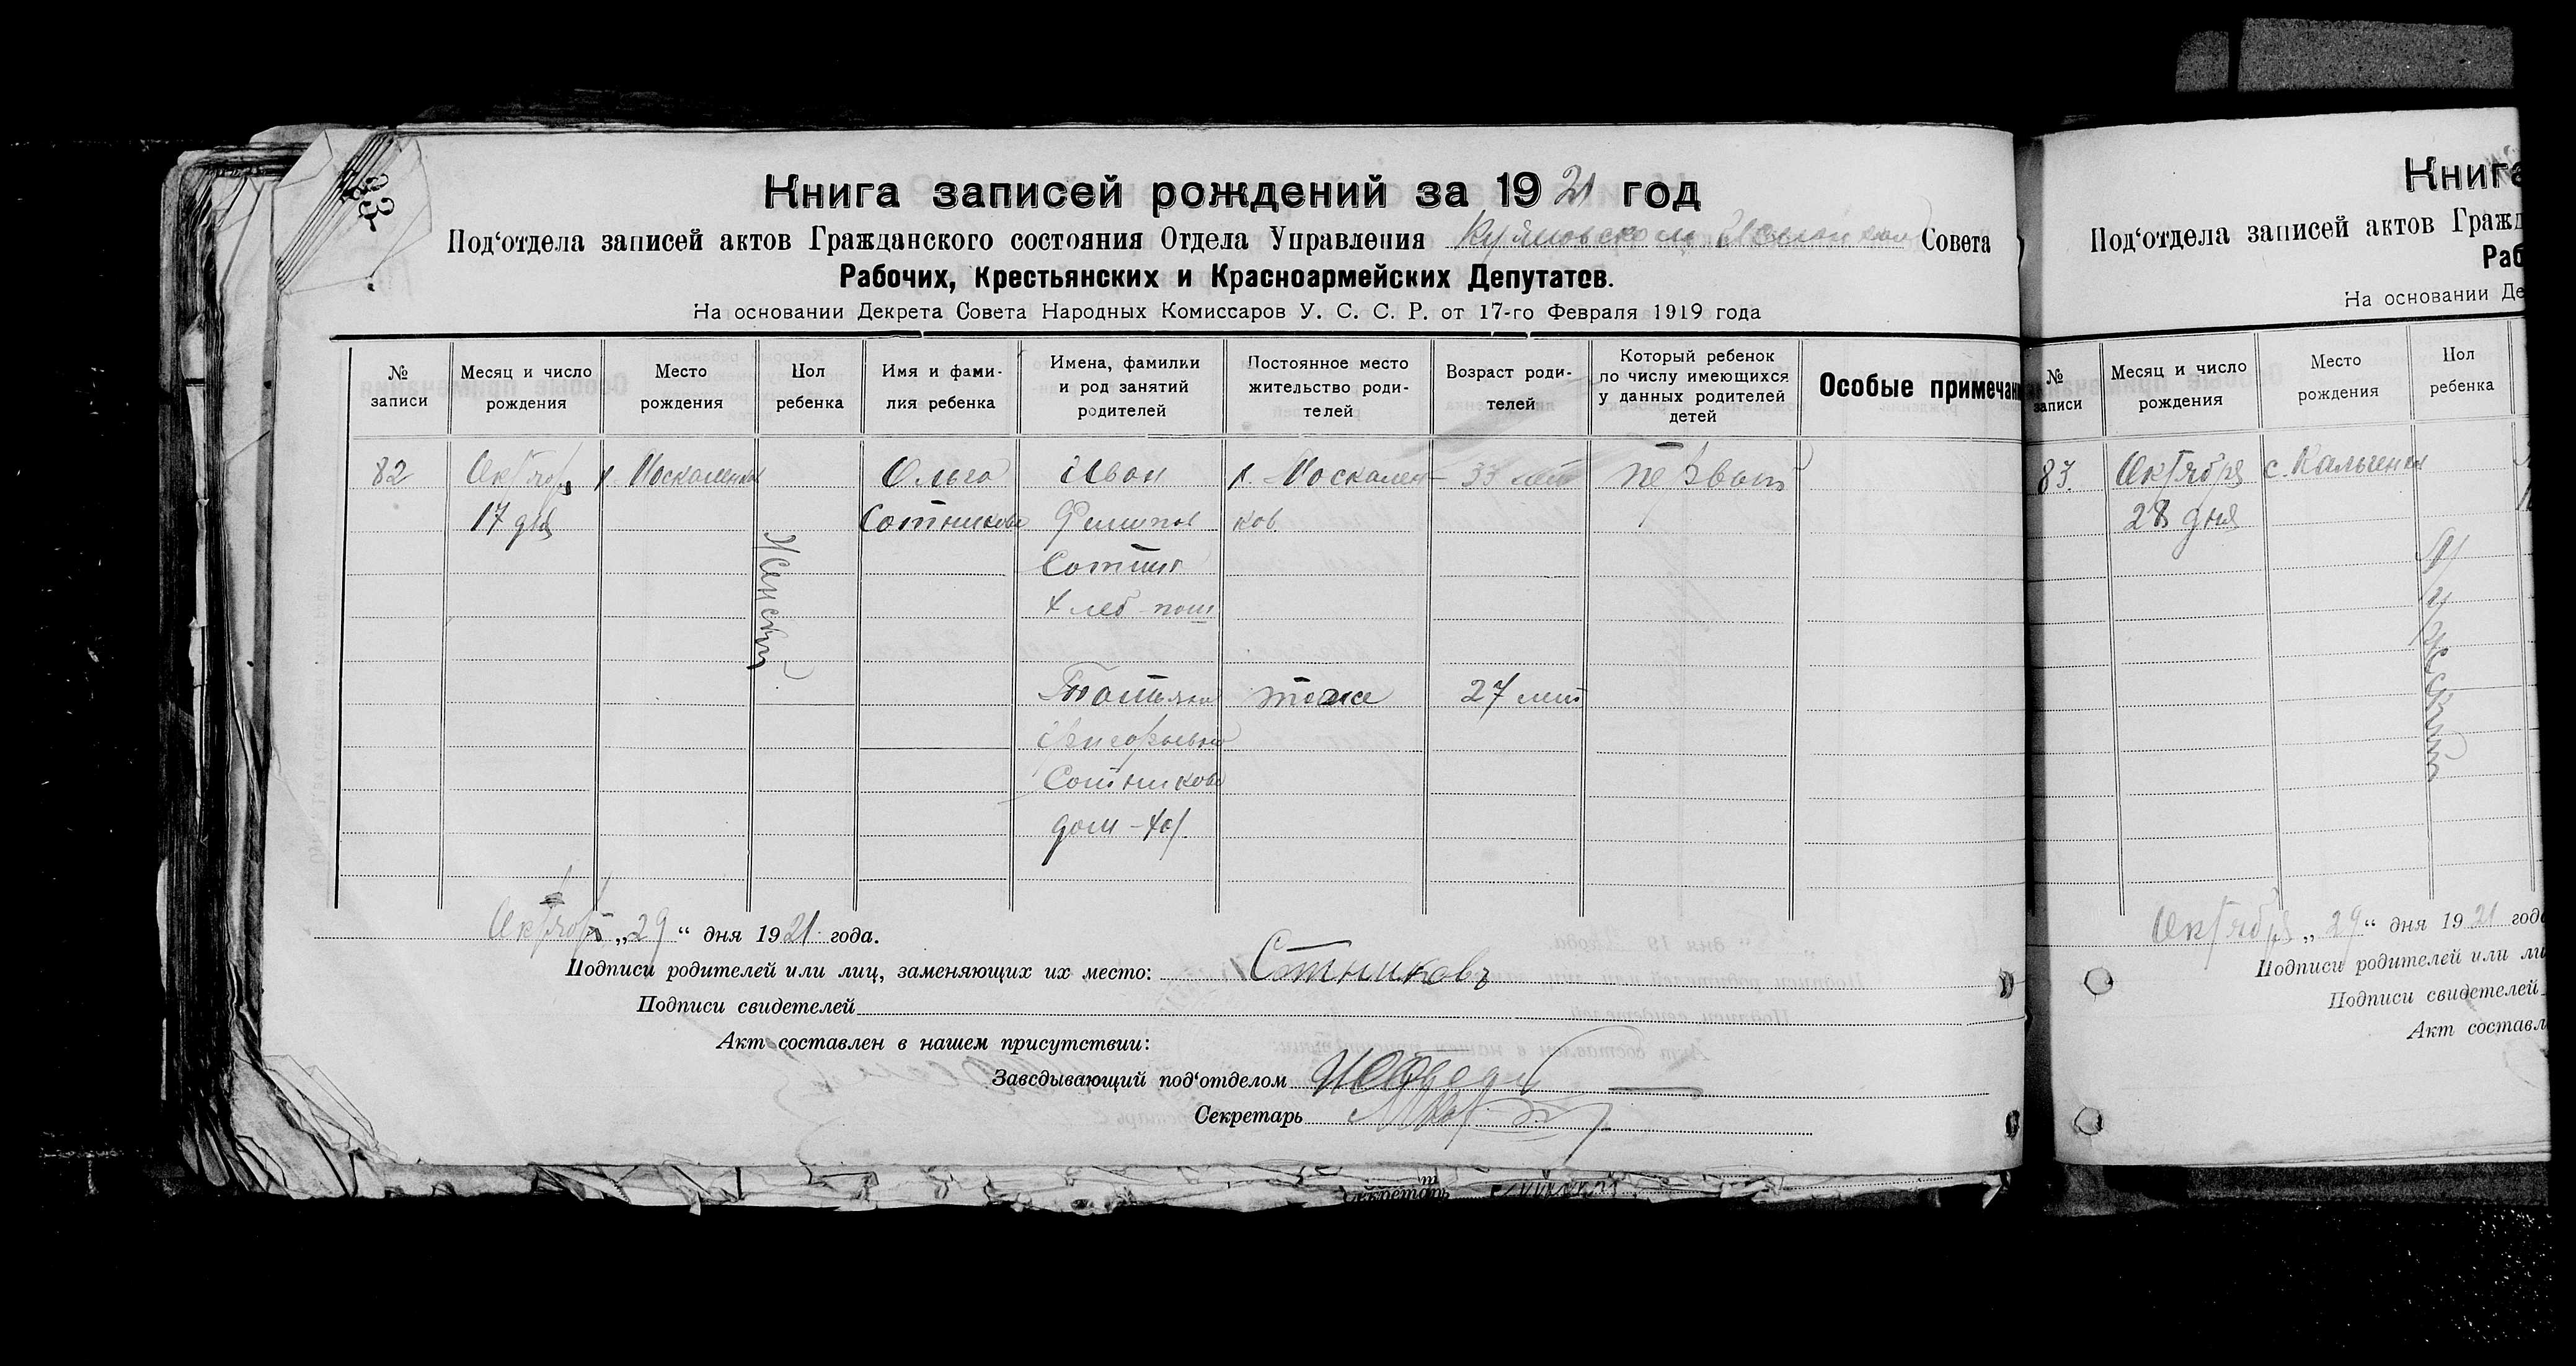 Книга записей рождений за 1921 год
Под‘отдела записей актов Гражданского состояния Отдела Управления Совета
Рабочих, Крестьянских и Красноармейских Депутатов.
На основании Декрета Совета Народных Комиссаров У. С. С. Р. от 17-го Февраля 1919 года
№ записи
Месяц и число рождения
Место рождения
Пол ребенка
Имя и фами-
лия ребенка
Имена, фамилии
и род занятий
родителей
Постоянное место
жительство роди-
телей
Возраст роди-
телей
Который ребенок
по числу имеющихся
у данных родителей
детей
Особые примечан
82
Октября
17 дня
х. Москаленки
Женский
Ольга
Сотникова
Иван
Филипов
Сотник
хлеб-паш
х. Москален-
ков
33 лет
первый
Татьяна
Григорьевна
Сотникова
дом-хоз.
тоже
27 лет
Октября „29“ дня 1921 года.
Подписи родителей или лиц, заменяющих их место: Сотниковъ
Подписи свидетелей
Акт составлен в нашем присутствии:
Заведывающий под‘отделом
Секретарь
Секретарь
Книга
Под‘отдела записей актов Гражд
Раб
На основании Де
№ записи
Месяц и число рождения
Место рождения
Пол ребенка
83.
Октября
28 дня
Мужский
Октября „29“ дня 1921 года
Подписи родителей или ли
Подписи свидетелей
Акт составл